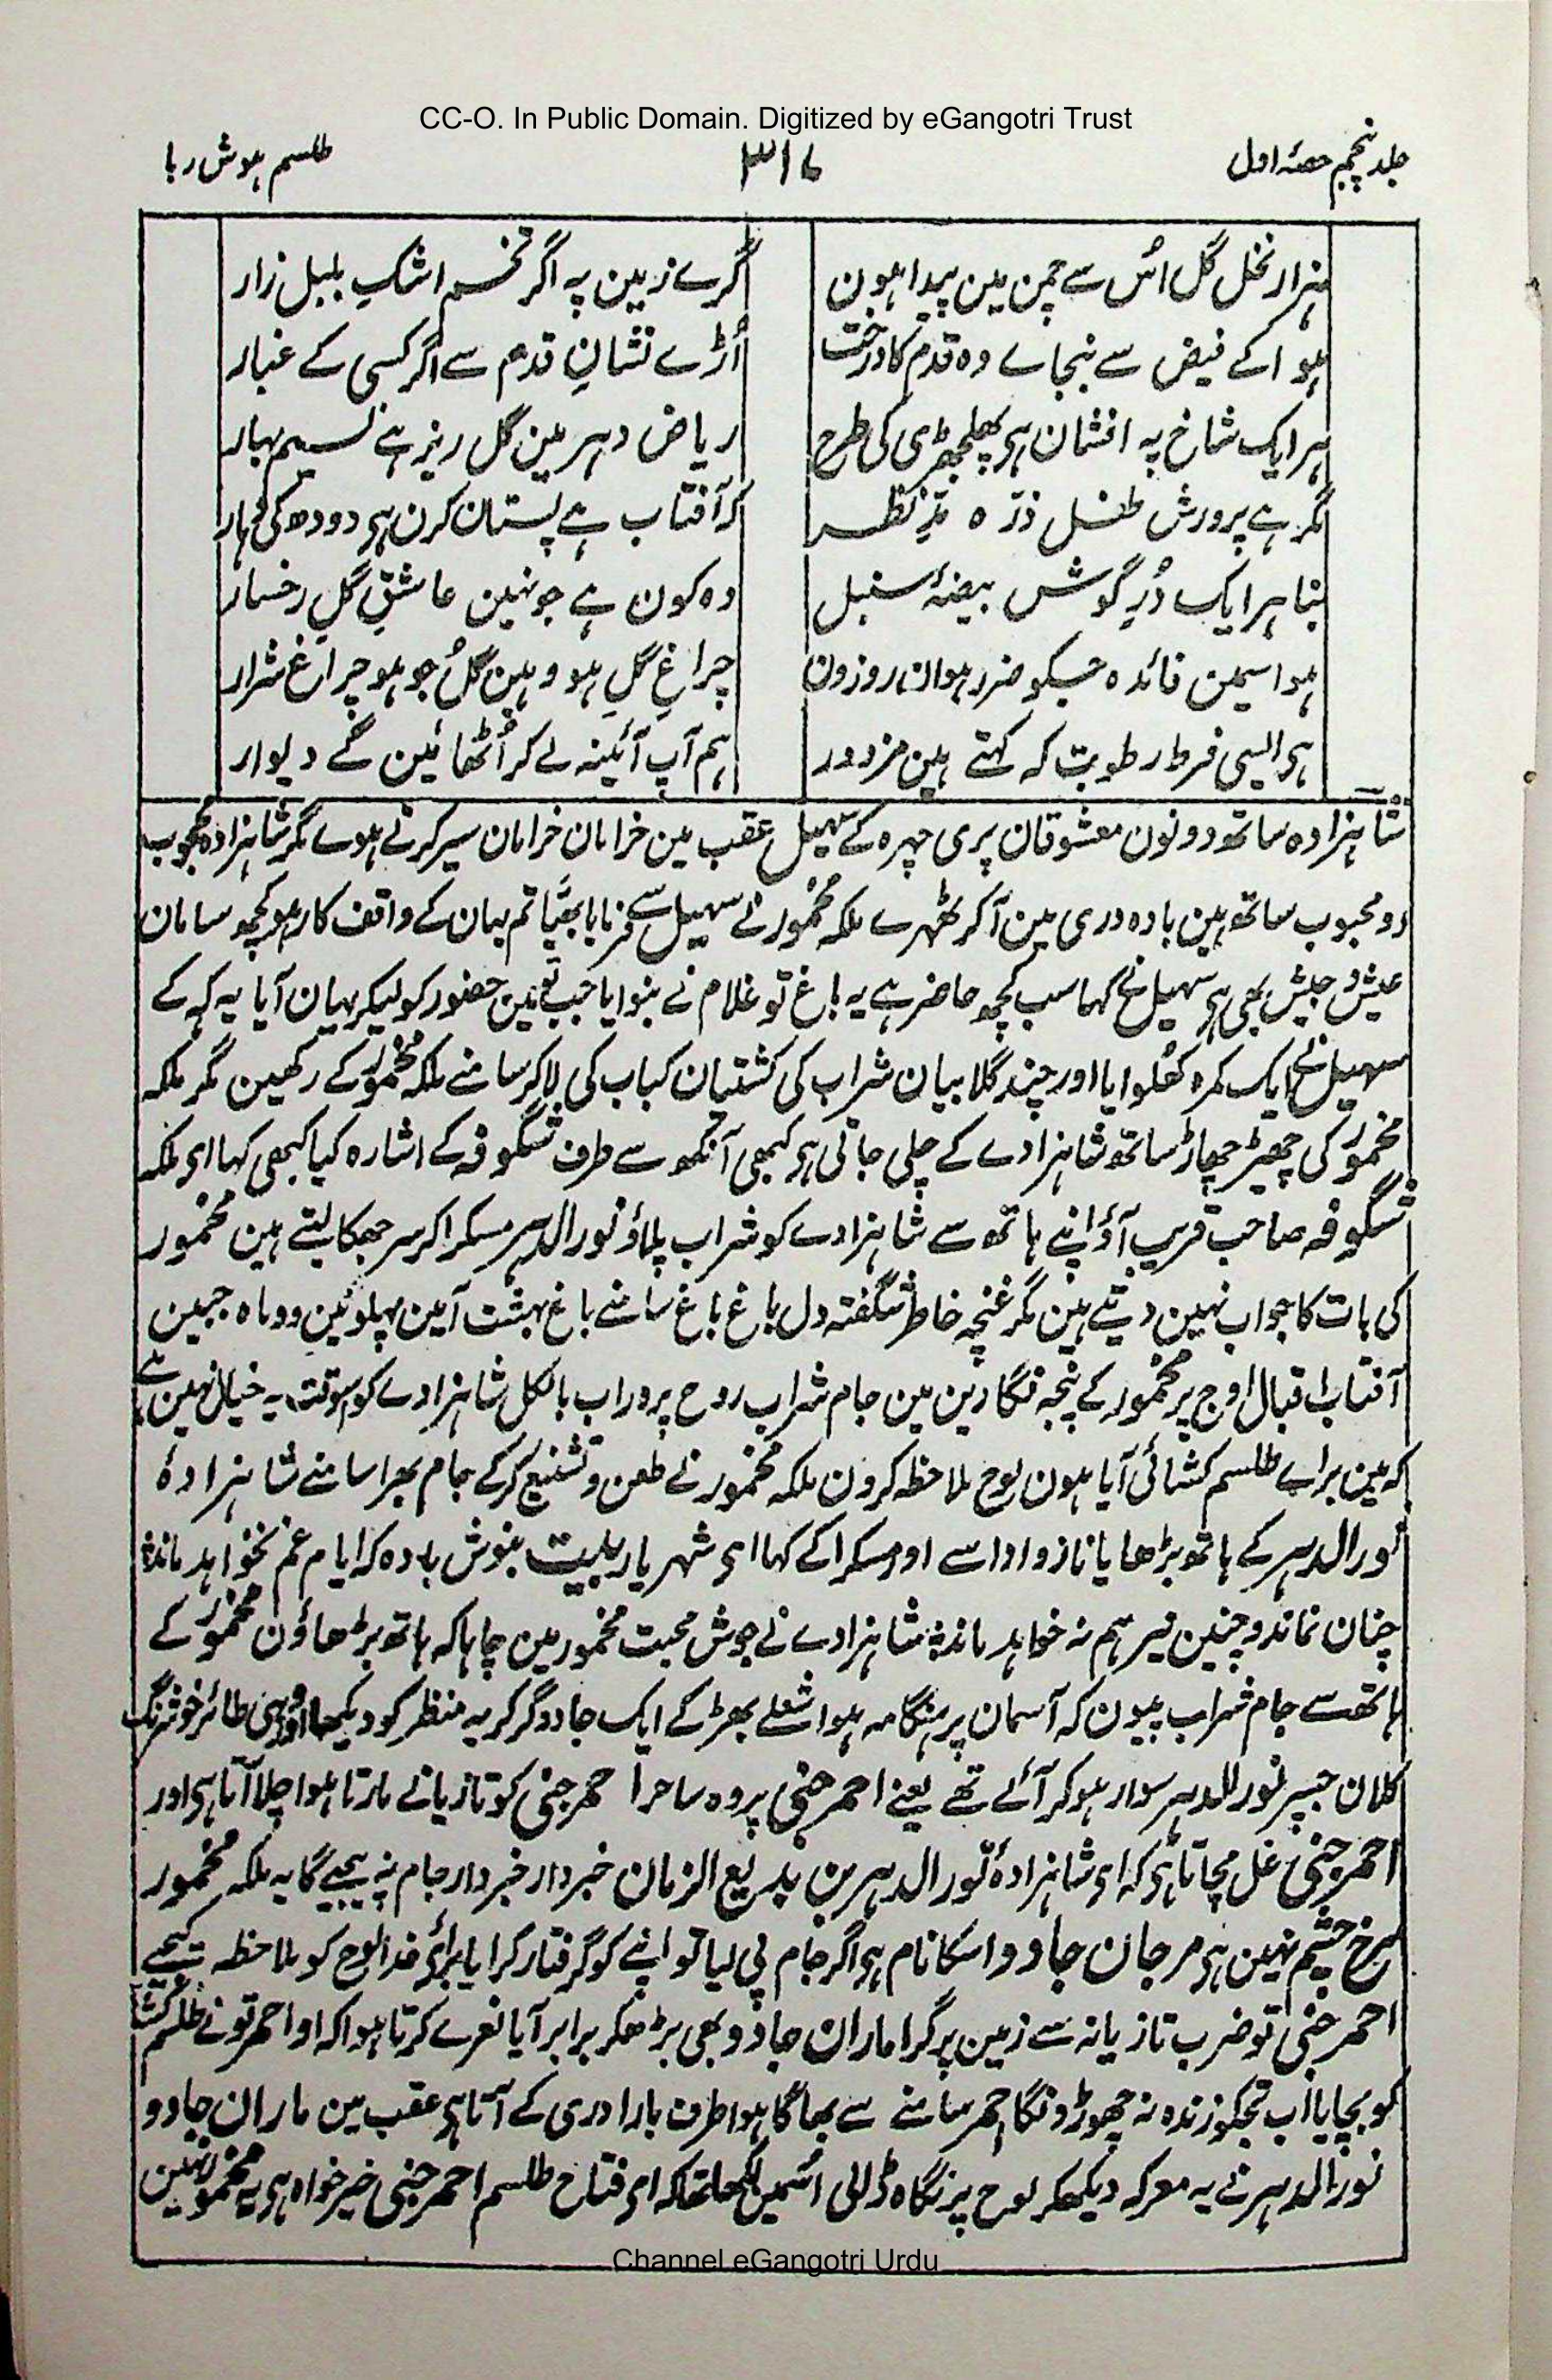 CC-O. In Public Domain. Digitized by eGangotri Trust
جلد پنجم حصۂ اول ۳۱۷ طلسم ہوش ربا
ہزار نخل گل اُس سے چمن مین پیدا ہون گرے زمین پہ اگر تخم اشکِ بلبل زار
ہوا کے فیض سے بنجاے وہ قدم کا درخت اُڑے نشانِ قدم سے اگر کسی کے غبار
ہر ایک شاخ پہ افشان ہی پھلجھڑی کی طرح ریاض دہر مین گل ریز ہے نسیم بہار
مگر ہے پرورش طفل ذرّہ مدِّ نظر کہ آفتاب ہے پستان کرن ہی دودھ کی دھار
بنا ہر ایک دُرِ گوش بیضۂ سنبل وہ کون ہے جو نہین عاشقِ گلِ رخسار
ہوا سمین فائدہ جسکو ضرر ہو ان روزون چراغِ گل ہو وہین گُل جو ہو چراغ شرار
ہی ایسی فرط رطوبت کہ کہتے ہین مزدور ہم آپ آئینہ لے کر اُٹھائین گے دیوار
شاہزادہ ساتھ دونون معشوقان پری چہرہ کے سہیل عقب مین خرامان خرامان سیر کرتے ہوے مگر شاہزادہ محجوب
دو محبوب ساتھ ہین بارہ دری مین آکر ٹھہرے ملکہ مخمور نے سہیل سے فرمایا بھیّا تم یہان کے واقف کار ہو کچھ سامان
عیش و جیش بھی ہی سہیل نے کہا سب کچھ حاضر ہے یہ باغ تو غلام نے بنوایا جب تو مین حضور کو لیکر یہان آیا یہ کہہ کے
سہیل نے ایک کمرہ کھلوایا اور چند گلابیان شراب کی کشتیان کباب کی لا کر سامنے ملکہ مخمور کے رکھین مگر ملکہ
مخمور کی چھیڑ چھاڑ ساتھ شاہزادے کے چلی جاتی ہی کبھی آنکھ سے طرف شگوفہ کے اشارہ کیا کبھی کہا ای ملکہ
شگوفہ صاحب قریب آؤ اپنے ہاتھ سے شاہزادے کو شراب پلاؤ نور الدہر مسکرا کر سر جھکا لیتے ہین مخمور
کی بات کا جواب نہین دیتے ہین مگر غنچہ خاطر شگفتہ دل باغ باغ سامنے باغ بہشت آئین پہلو مین دو ماہ جبین
آفتاب اقبال اوج پر مخمور کے پنجہ نگارین مین جام شراب روح پرور اب بالکل شاہزادے کو اسوقت یہ خیال نہین ہے
کہ مین براے طلسم کشائی آیا ہون لوح ملاحظہ کرون ملکہ مخمور نے طعن و تشنیع کر کے جام بھرا سامنے شاہزادۂ
نورالدہر کے ہاتھ بڑھایا ناز و ادا سے اور مسکرا کے کہا ای شہریار بیت بنوش بادہ کہ ایام غم نخواہد ماند
چنان نماند و چنین نیز ہم نہ خواہد ماند شاہزادے نے جوش محبت مخمور مین چاہا کہ ہاتھ بڑھاؤن مخمور کے
ہاتھ سے جام شراب پیون کہ آسمان پر ہنگامہ ہوا شعلے بھڑکے ایک جادوگر کریہ منظر کو دیکھا اور وہی طائر خوشرنگ
کلان جسپر نور الدہر سوار ہو کر آئے تھے یعنے احمر جنّی پر وہ ساحر احمر جنی کو تازیانے مارتا ہوا چلا آتا ہی اور
احمر جنی غل مچاتا ہی کہ ای شاہزادۂ نور الدہر بن بدیع الزمان خبردار خبردار جام نہ پیجیے گا یہ ملکہ مخمور
سرخ چشم نہین ہی مرجان جادو اسکا نام ہی اگر جام پی لیا تو اپنے کو گرفتار کرایا براے خدا لوح کو ملاحظہ کیجیے
احمر جنی تو ضرب تازیانہ سے زمین پر گرا ماران جادو بھی بڑھکر برابر آیا نعرے کرتا ہوا کہ او احمر تونے طلسم کشا
کو بچایا اب تجکو زندہ نہ چھوڑونگا احمر سامنے سے بھاگا ہوا طرف بارا دری کے آتا ہی عقب مین ماران جادو
نور الدہر نے یہ معرکہ دیکھکر لوح پر نگاہ ڈالی اسمین لکھا تھا کہ ای فتاح طلسم احمر جنی خیر خواہ ہی یہ مخمور نہین
Channel eGangotri Urdu